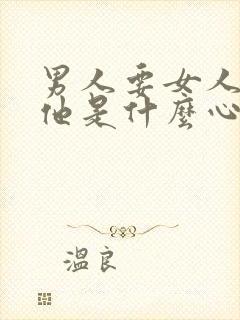 男人要女人
他是什麼心
溫良